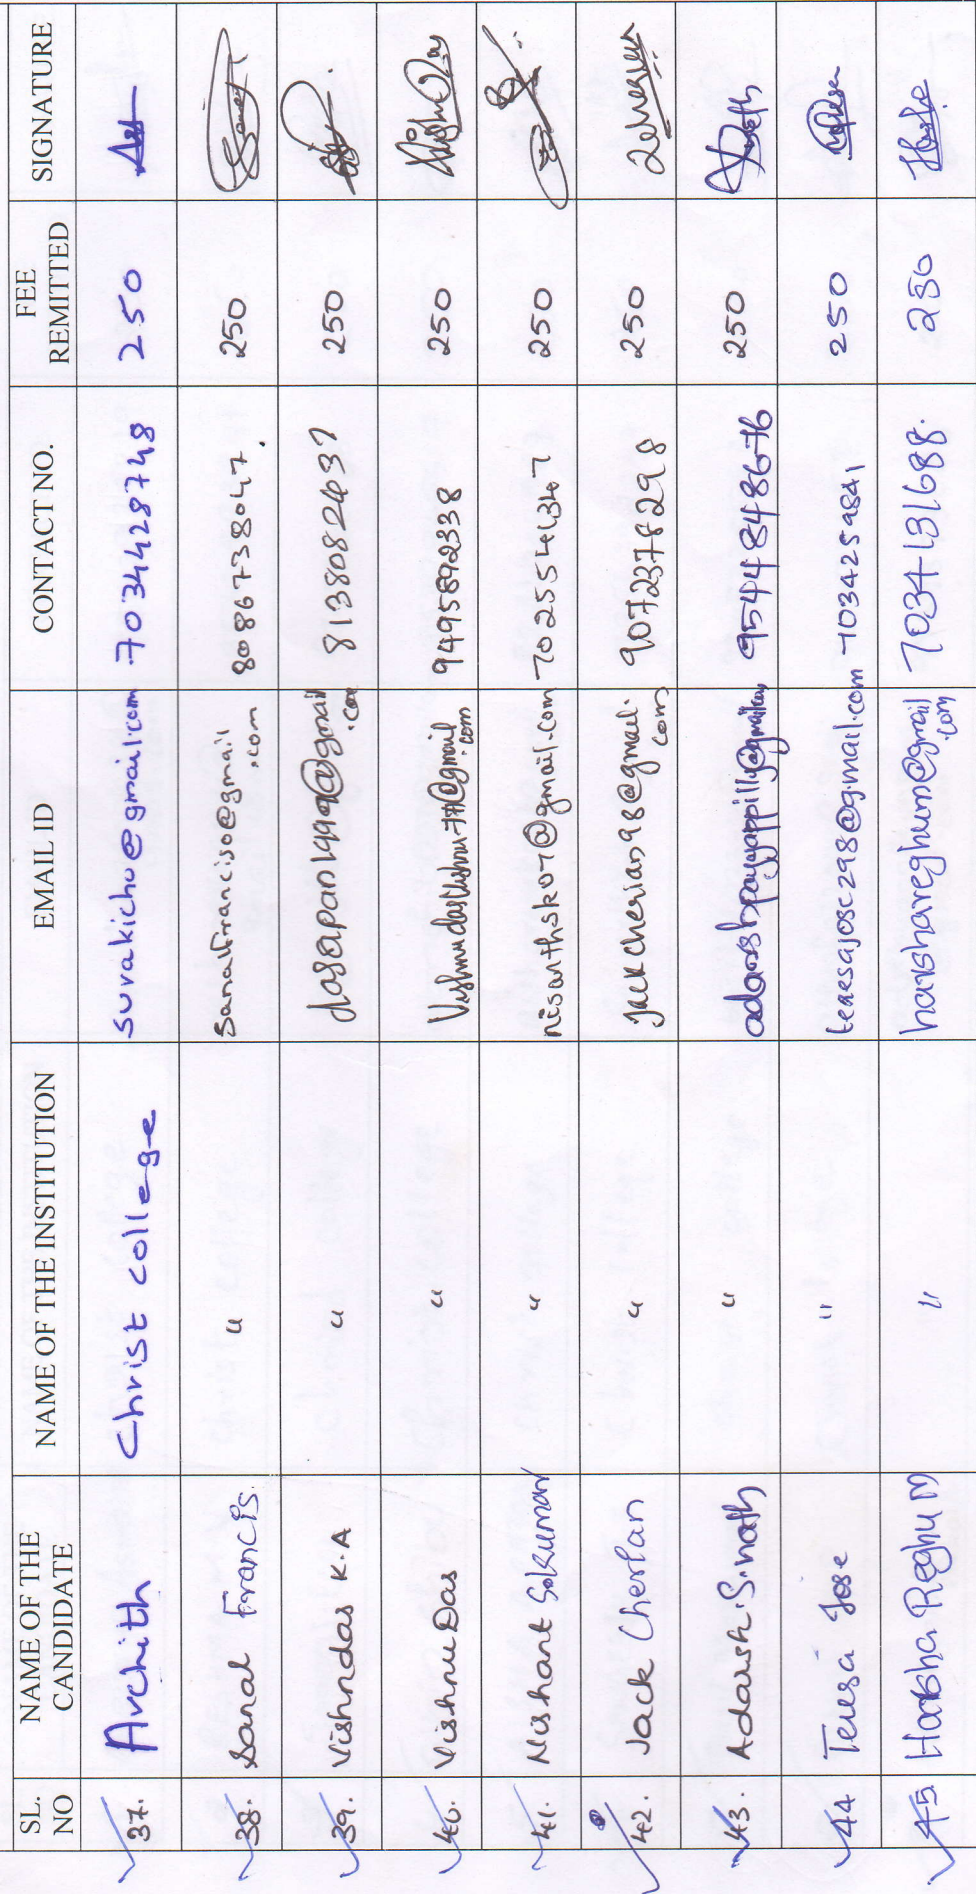 SL. NO NAME OF THE CANDIDATE NAME OF THE INSTITUTION EMAIL ID CONTACT NO. FEE REMITTED SIGNATURE
37. Archith Christ college surakichu@gmail.com 7034428748 250
38. Sanal Francis. " sanalfranciso@gmail.com 8086738047. 250
39. Vishndas K.A " dasapan1999@gmail.com 8138082437 250
40. Vishnu Das " Vishnudasvishnu77@gmail.com 9495892338 250
41. Nishant S.Kumar " nisanthsk07@gmail.com 7025541347 250
42. Jack Cherian " jackcherian98@gmail.com 9072376298 250
43. Adarsh.S.nath " adarshpayyappilly@gmail.com 9544848676 250
44 Teresa Jose " tereesajose298@gmail.com 7034259841 250
45. Harsha Reghu M " harshareghum@gmail.com 7034131688. 250